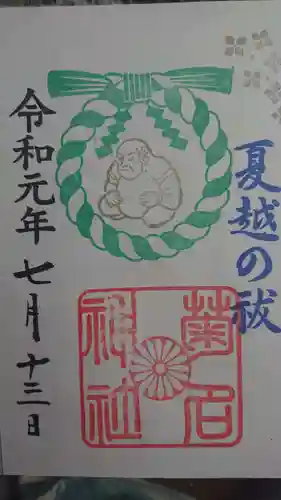 夏越の祓
菊名
神社
令和元年七月十三日